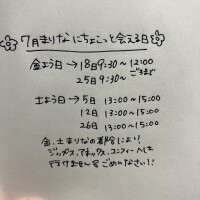 7月まりなにちょこっと会える日
金よう日→18日9:30～12:00
ごろまで
25日9:30～
土よう日→5日 13:00～15:00
12日 13:00～15:00
26日 13:00～15:00
金、土まりなの
ジップス、アネックス、コンフィへは
行けませんをごめんなさい!!